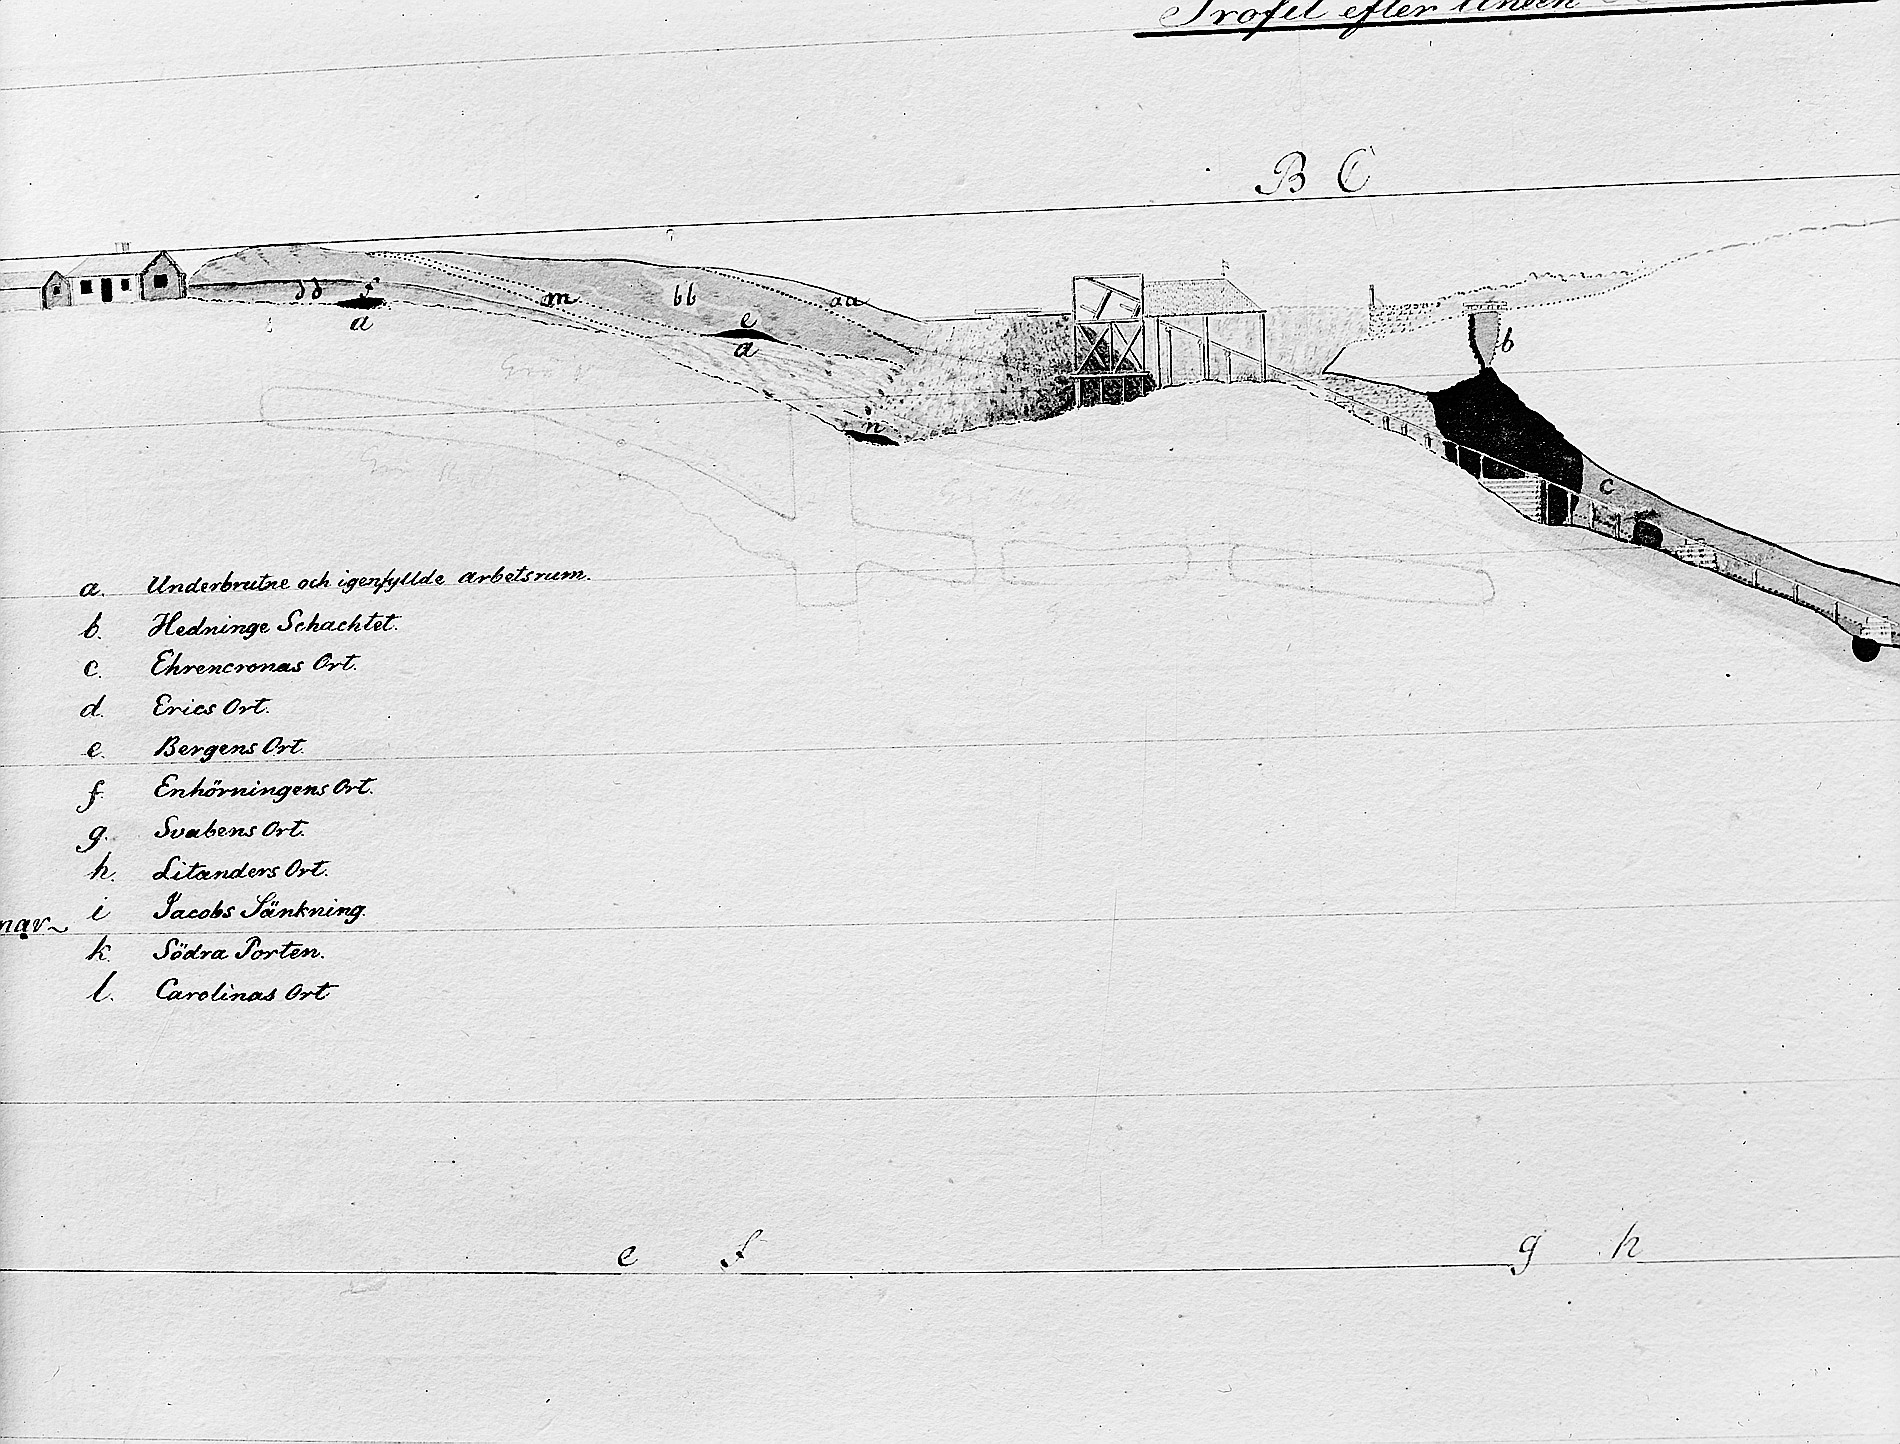 Profil efter linien
B C
dd
f
a
m
bb
e
a
aa
n
b
c
a. Underbrutne och igenfyllde arbetsrum.
b. Hedninge Schachtet.
c. Ehrencronas Ort.
d. Erics Ort.
e. Bergens Ort.
f. Enhörningens Ort.
g. Svabens Ort.
h. Litanders Ort.
i Jacobs Sänkning.
k. Södra Porten.
l. Carolinas Ort
e f g h